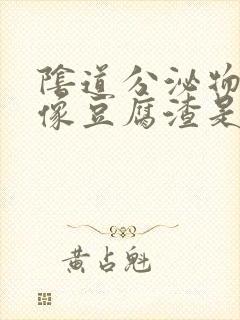 陰道分泌物
像豆腐渣是
黄占魁